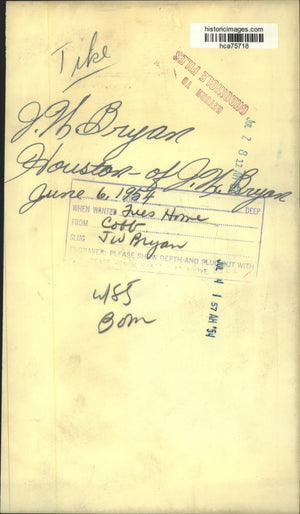 historicimages.com
hca75718
Tike
RETURN TO
J. W. Bryan
Houston - of J. W. Bryan
June 6, 1954
WHEN WANTED Tues Home DEEP
FROM Cobb
SLUG JW Bryan
ENGRAVER: PLEASE SHOW DEPTH AND SLUG OUT WITH
ABOVE
1 57 AM '54
W/85
Bom